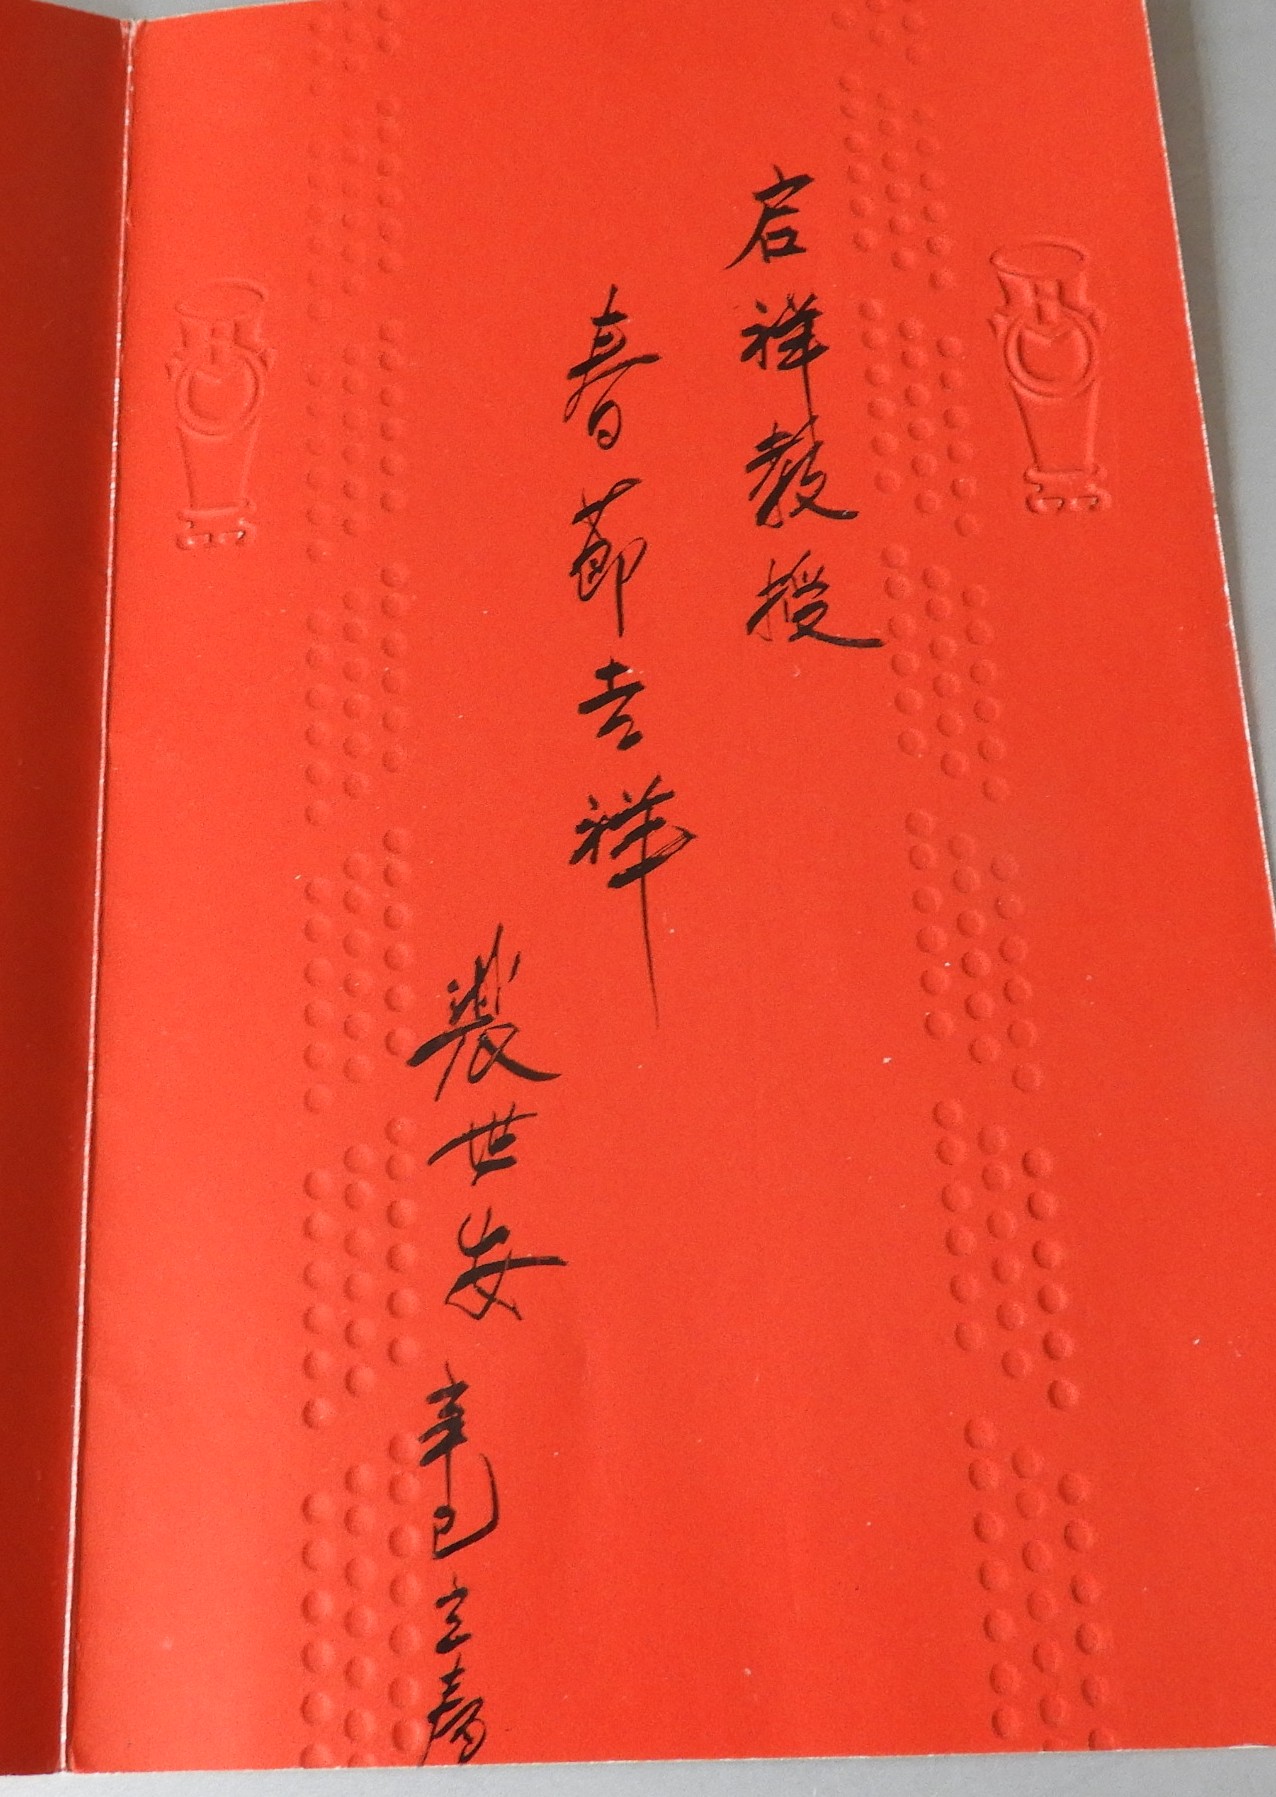 启祥教授
春节吉祥
裴世安 辛巳立春